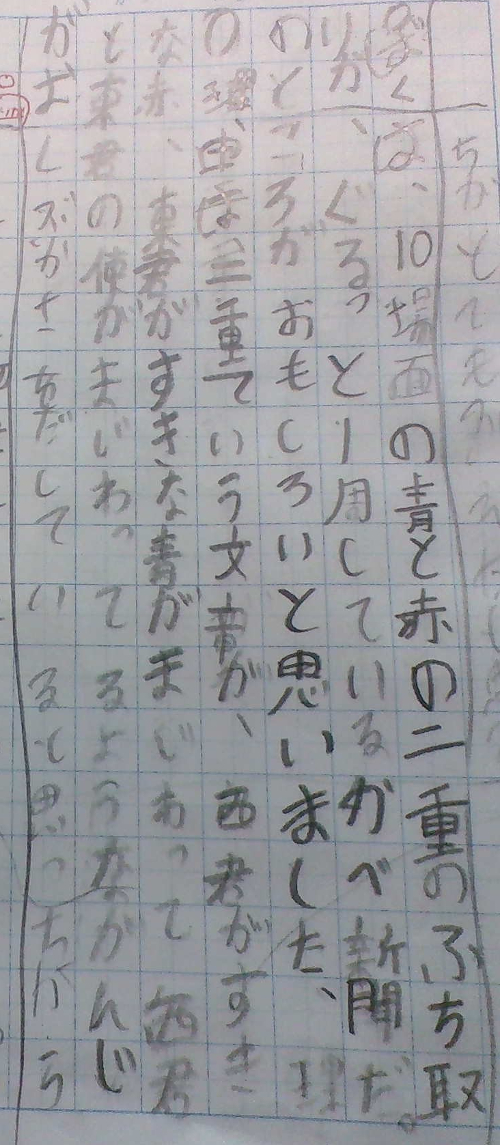 ちがとても
ぼくは、10場面の青と赤の二重のふち取
りが、ぐるっと1周しているかべ新聞だ。
のところがおもしろいと思いました、理
由は三重ていう文章が、西君がすき
な赤、東君がすきな青がまじわって西君
と東君の使がまじわってるようなかんじ
がよく だしていると思っ から